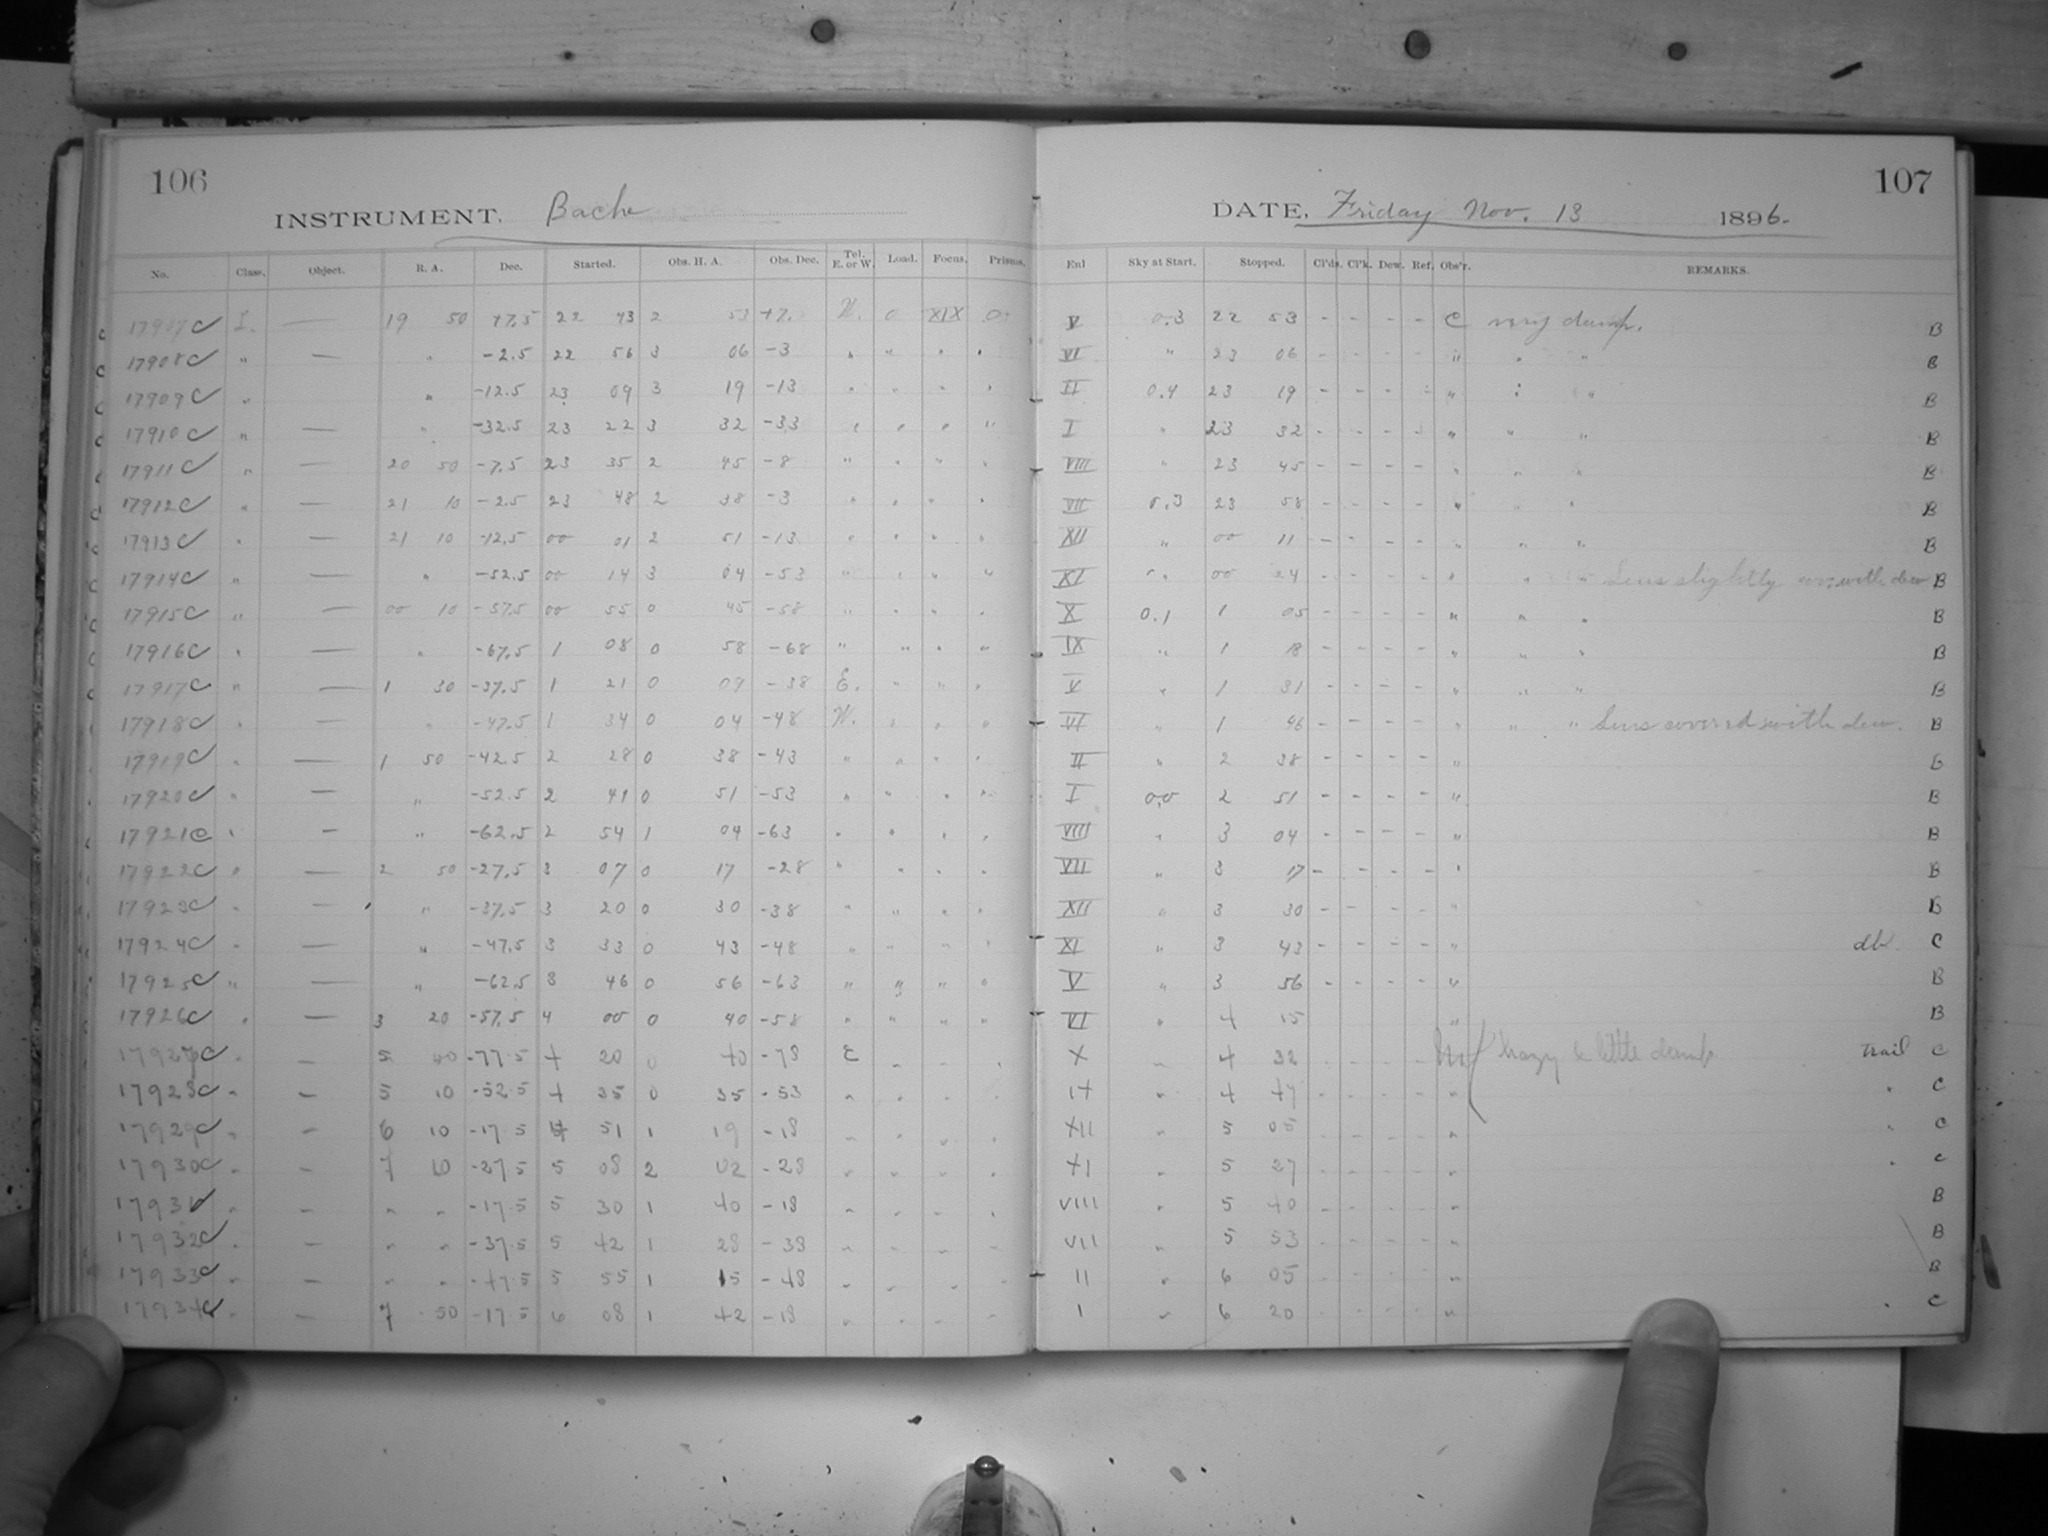 106
107
INSTRUMENT. Bache
DATE, Friday Nov. 13 1896.
No. Class. Object. R. A. Dec. Started. Obs. H. A. Obs. Dec. Tel. E. or W. Load. Focus. Prisms. Enl Sky at Start. Stopped. Cl'ds. Cl'k. Dew. Ref. Obs'r. REMARKS.
17907C I. — 19 50 +7.5 22 43 2 53 +7. W. 0 XIX 0 V 0.3 22 53 - - - - C very damp. B
17908C " — " -2.5 22 56 3 06 -3 " " " " VI " 23 06 - - - - " " " B
17909C " — " -12.5 23 09 3 19 -13 " " " " II 0.4 23 19 - - - - " " " B
17910C " — " -32.5 23 22 3 32 -33 " " " " I " 23 32 - - - - " " " B
17911C " — 20 50 -7.5 23 35 2 45 -8 " " " " VIII " 23 45 - - - - " " " B
17912C " — 21 10 -2.5 23 48 2 38 -3 " " " " VII 0.3 23 58 - - - - " " " B
17913C " — 21 10 -12.5 00 01 2 51 -13 " " " " XII " 00 11 - - - - " " " B
17914C " — " -52.5 00 14 3 04 -53 " " " " XI " 00 24 - - - - " " " Lens slightly with dew B
17915C " — 00 10 -57.5 00 55 0 45 -58 " " " " X 0.1 1 05 - - - - " " " B
17916C " — " -67.5 1 08 0 58 -68 " " " " IX " 1 18 - - - - " " " B
17917C " — 1 30 -37.5 1 21 0 09 -38 E. " " " V " 1 31 - - - - " " " B
17918C " — " -47.5 1 34 0 04 -48 W. " " " VI " 1 46 - - - - " " " Lens covered with dew. B
17919C " — 1 50 -42.5 2 28 0 38 -43 " " " " II " 2 38 - - - - " B
17920C " — " -52.5 2 41 0 51 -53 " " " " I 0.0 2 51 - - - - " B
17921C " — " -62.5 2 54 1 04 -63 " " " " VIII " 3 04 - - - - " B
17922C " — 2 50 -27.5 3 07 0 17 -28 " " " " VII " 3 17 - - - - " B
17923C " — " -37.5 3 20 0 30 -38 " " " " XII " 3 30 - - - - " B
17924C " — " -47.5 3 33 0 43 -48 " " " " XI " 3 43 - - - - " dbl. C
17925C " — " -62.5 3 46 0 56 -63 " " " " V " 3 56 - - - - " B
17926C " — 3 20 -57.5 4 00 0 40 -58 " " " " VI " 4 15 " B
17927C " — 5 40 -77.5 4 20 0 40 -78 E - - - X " 4 32 - - - - hazy & little damp. Trail C
17928C " — 5 10 -52.5 4 35 0 35 -53 " " " " IX " 4 47 - - - - " " C
17929C " — 6 10 -17.5 4 51 1 19 -18 " " " " XII " 5 05 - - - - " " C
17930C " — 7 10 -27.5 5 08 2 02 -28 " " " " XI " 5 27 - - - - " " C
17931C " — " " -17.5 5 30 1 40 -18 " " " " VIII " 5 40 - - - - " B
17932C " — " " -37.5 5 42 1 28 -38 " " " " VII " 5 53 - - - - " B
17933C " — " " -47.5 5 55 1 15 -48 " " " " II " 6 05 - - - - " B
17934C " — 7 50 -17.5 6 08 1 42 -18 " " " " I " 6 20 - - - - " " C